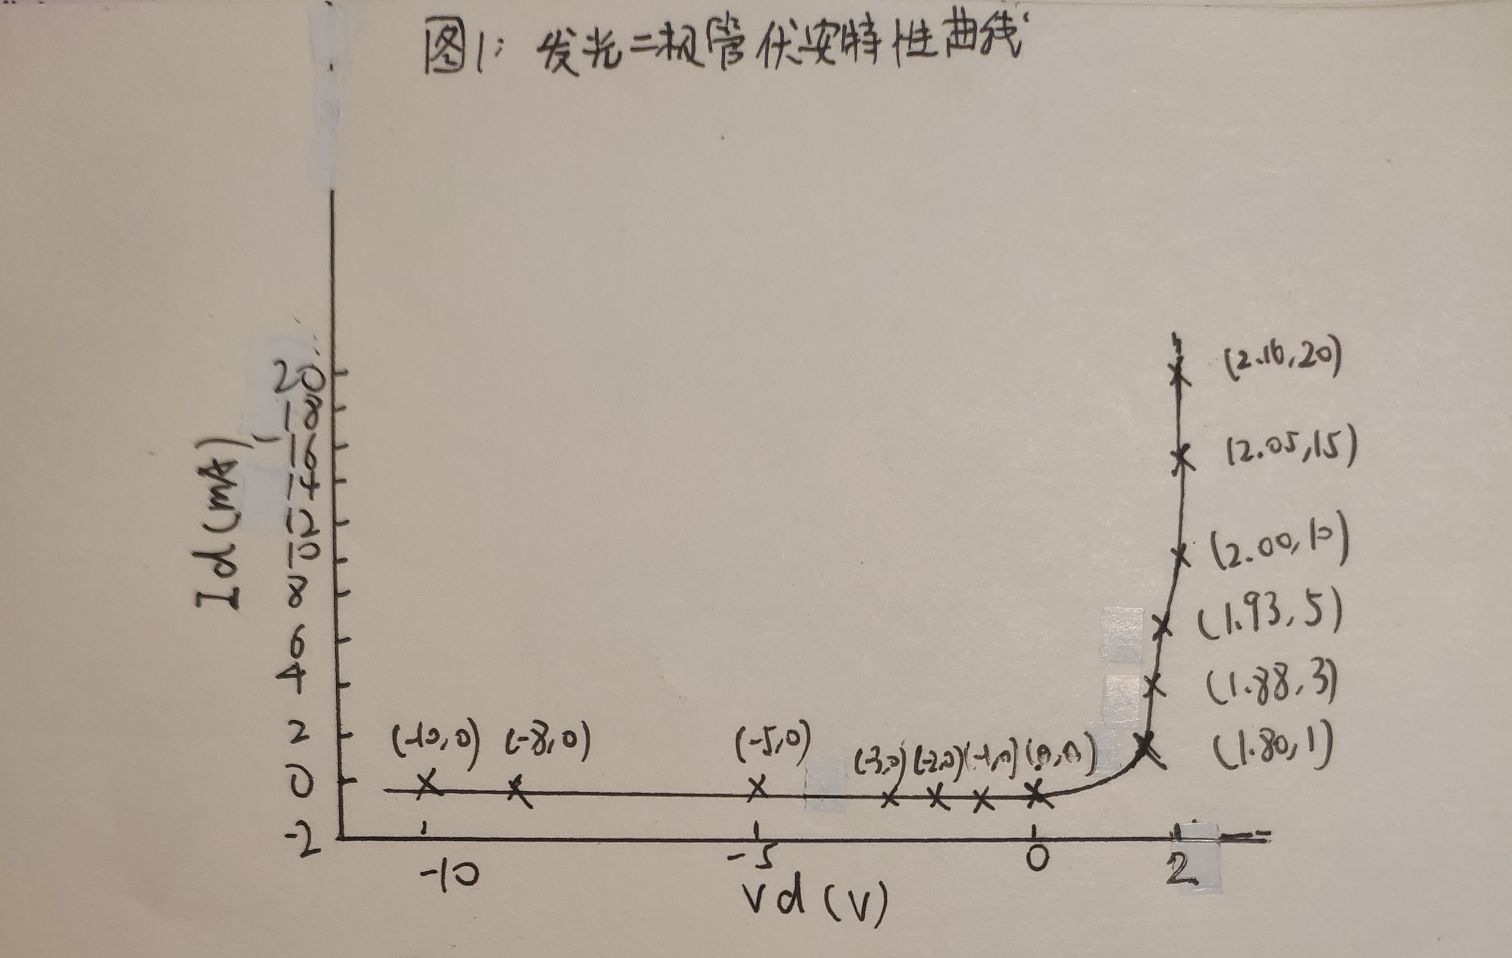 图1: 发光二极管伏安特性曲线
20
18
16
14
12
10
8
6
4
2
0
-2
Id (mA)
(2.16, 20)
(2.05, 15)
(2.00, 10)
(1.93, 5)
(1.88, 3)
(1.80, 1)
(-10, 0) (-8, 0) (-5, 0) (-3, 0) (-2, 0) (-1, 0) (0, 0)
-10 -5 0 2
Vd (V)